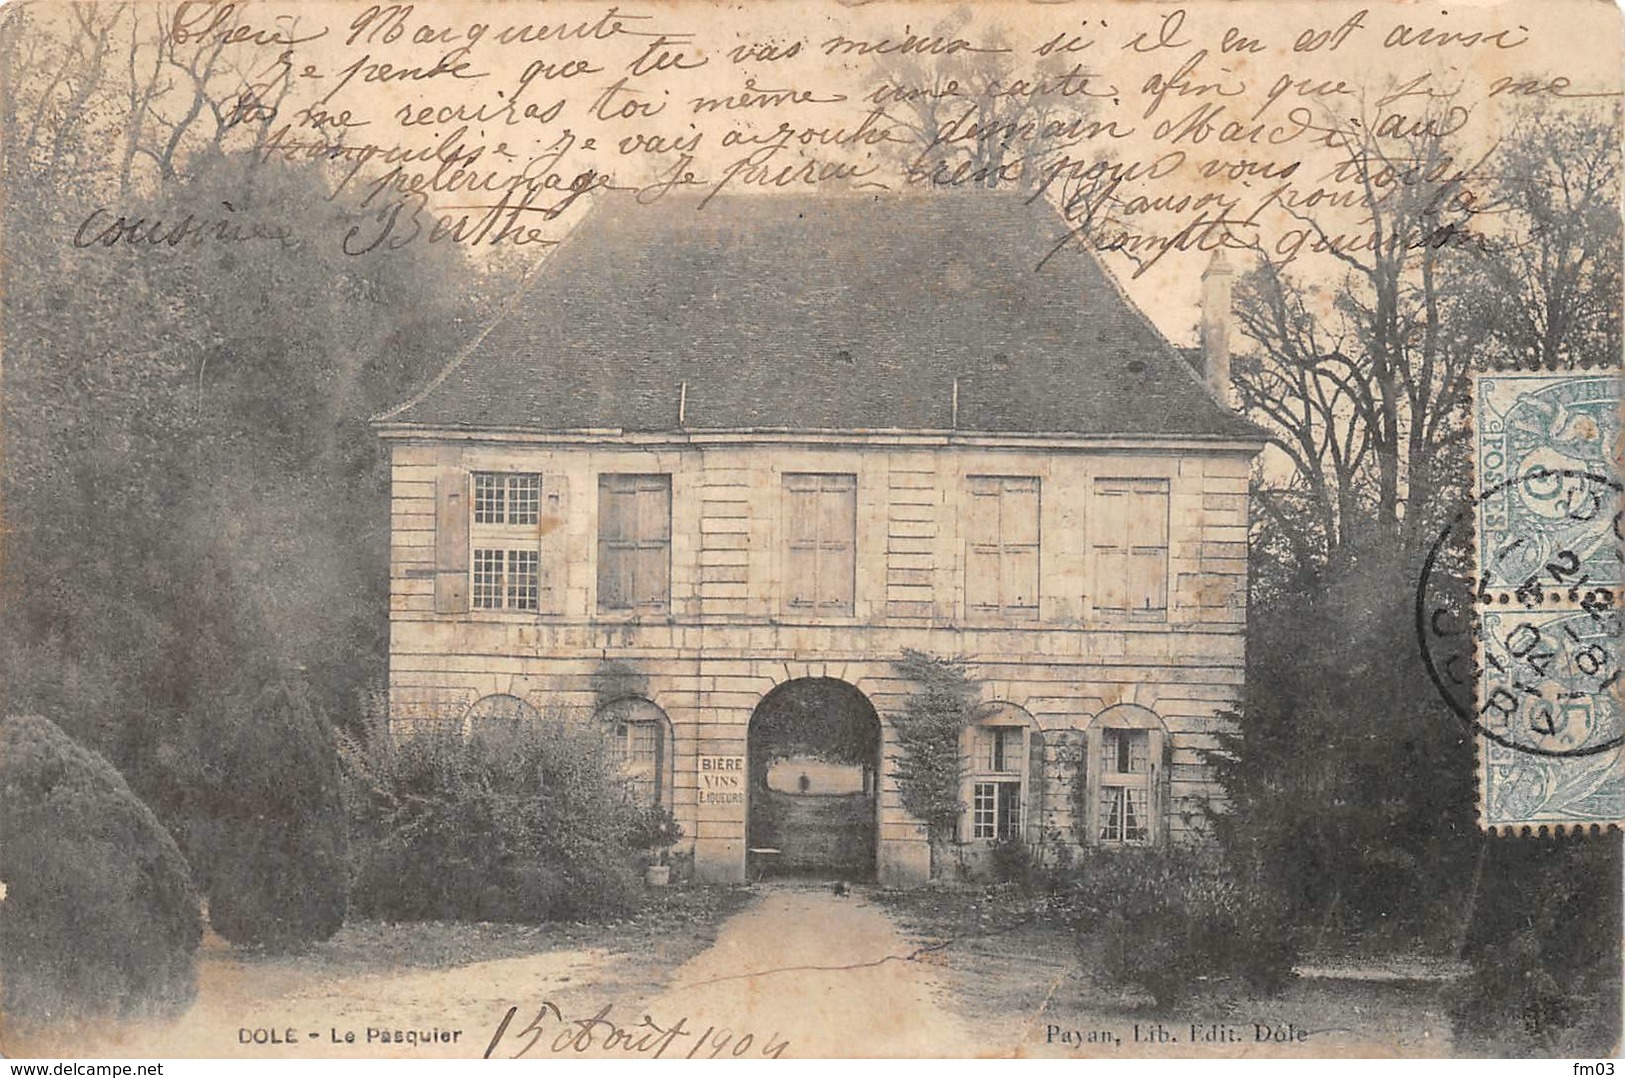 Cheù Marguerite
Je pense que tu vas mieux si il en est ainsi
tu me recriras toi même une carte afin que si me
tranquilise. Je vais a joulhe demain Mardi au
pelèrinage Je prirai bien pour vous trois
et aussi pour ta
prompte guérison
cousine Berthe
LIBERTÉ
BIÈRE
VINS
LIQUEURS
POSTES
5
DOLE - Le Pasquier
15 Août 1904
Payan, Lib. Edit. Dôle
delcampe.net
fm03